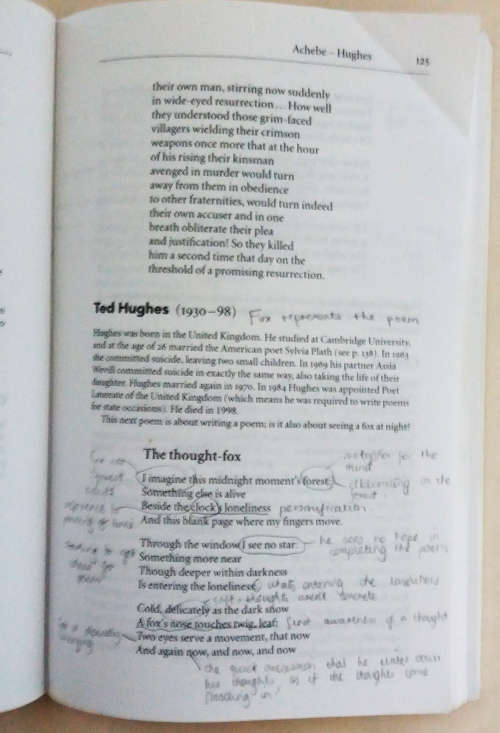 Achebe – Hughes 125
their own man, stirring now suddenly
in wide-eyed resurrection... How well
they understood those grim-faced
villagers wielding their crimson
weapons once more that at the hour
of his rising their kinsman
avenged in murder would turn
away from them in obedience
to other fraternities, would turn indeed
their own accuser and in one
breath obliterate their plea
and justification! So they killed
him a second time that day on the
threshold of a promising resurrection.
Ted Hughes (1930–98) Fox represents the poem
Hughes was born in the United Kingdom. He studied at Cambridge University,
and at the age of 26 married the American poet Sylvia Plath (see p. 138). In 1963
she committed suicide, leaving two small children. In 1969 his partner Assia
Wevill committed suicide in exactly the same way, also taking the life of their
daughter. Hughes married again in 1970. In 1984 Hughes was appointed Poet
Laureate of the United Kingdom (which means he was required to write poems
for state occasions). He died in 1998.
This next poem is about writing a poem; is it also about seeing a fox at night?
The thought-fox
metaphor for the
mind
I imagine this midnight moment's forest:
Something else is alive
Beside the clock's loneliness personification
And this blank page where my fingers move.
Through the window I see no star: he sees no hope in
completing the poem
Something more near
Though deeper within darkness
Is entering the loneliness: what's entering the loneliness
Cold, delicately as the dark snow
A fox's nose touches twig, leaf; first awareness of a thought
Two eyes serve a movement, that now
And again now, and now, and now
the quick succession that he
his thoughts as if the thoughts come
flooding in!